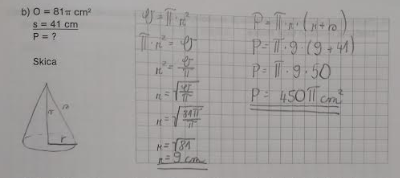 b) O = 81π cm²
s = 41 cm
P = ?
Skica
s
r
O = π·r²
π·r² = O
r² = O/π
r = √(O/π)
r = √(81π/π)
r = √81
r = 9 cm
P = π·r·(r+s)
P = π·9 (9+41)
P = π·9·50
P = 450π cm²